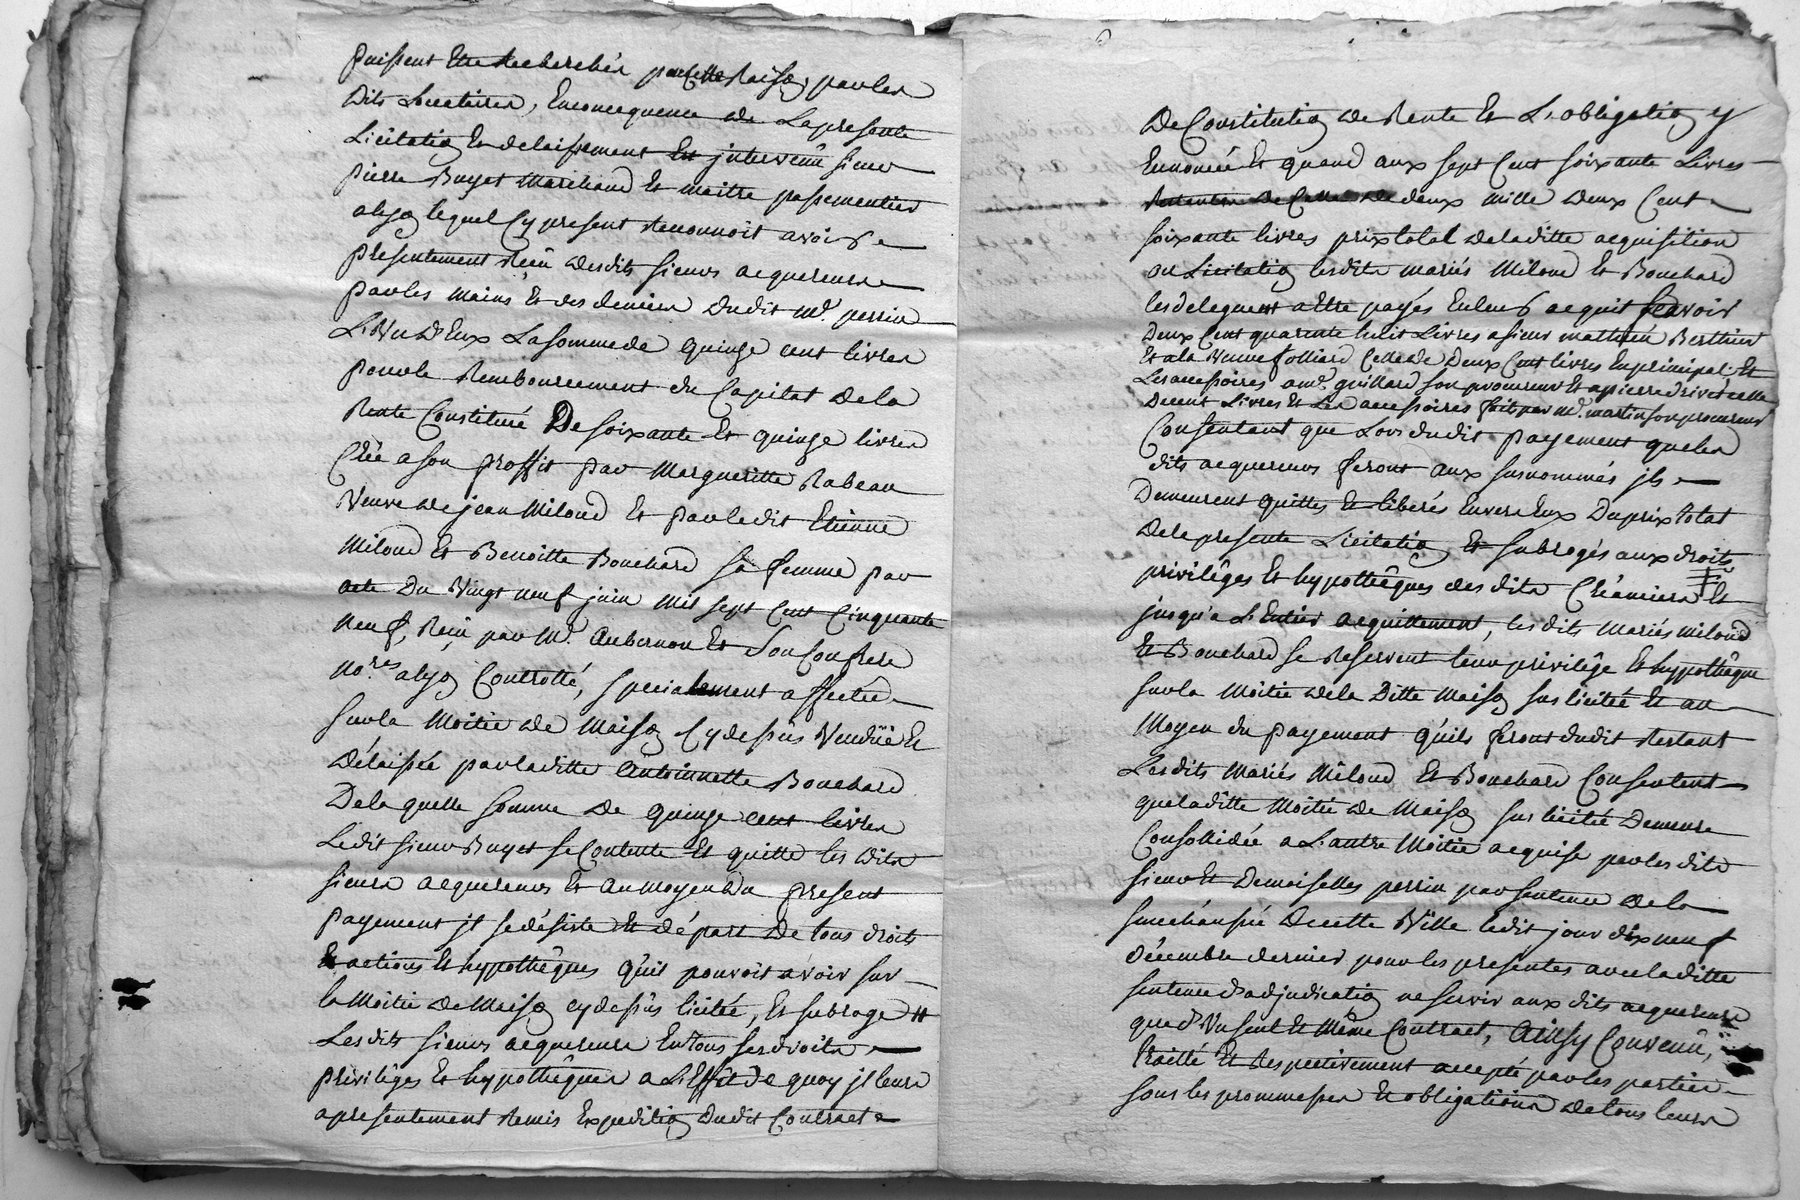 puissent Etre Recherchés par cette Raison, par les
Dits Locataires, Enconcequence de La presente
Licitation Et delaissement Est intervenû Sieur
pierre Buyet Marchand Et maitre passementier
alyon lequel Cy present Reconnoit avoir
presentement Reçû desdits Sieurs acquereurs
par les mains Et des deniers dudit Mr. perrin
L'un D'Eux La somme de quinze cent livres
pour le Remboursement du Capital de la
Rente Constitué De soixante Et quinze livres
Créé a son proffit par Margueritte Rabeau
Veuve de jean Miloud Et par ledit Etienne
Miloud Et Benoitte Bouchard sa femme par
acte Du Vingt neuf juin mil sept Cent Cinquante
neuf, Reçu par Me. Aubernon Et Son Confrere
no.res alyon Controllé, specialement affectée
sur la Moitié de Maison Cy dessus Venduë Et
Délaissée par laditte Antoinnette Bouchard
De laquelle somme de quinze cent livres
Ledit sieur Buyet se Contente Et quitte les dits
sieurs acquereurs Et au moyen Du present
payement il se désiste Et départ De tous droits
actions Et hypothêques qu'il pouvoit avoir sur
la Moitié de Maison cy dessus licitée, Et subroge
Lesdits sieurs acquereurs En tous ses droits
privilèges Et hypothêques a L'Effet de quoy il leurs
a presentement Remis Expedition Dudit Contract
De Constitution de Rente Et L'obligation y
Ennoncée Et quand aux sept Cent soixante Livres
De deux mille Deux Cent
soixante livres prix total de laditte acquisition
ou Licitation lesdits mariés Miloud Et Bouchard
les deleguent a Etre payés En leur acquit sçavoir
Deux Cent quarente huit Livres a sieur mathieu Berthier
Et a la Veuve folliard Celle de Deux Cent livres En principal Et
Les accessoires a me. guillard son procureur Et a pierre celle
De cent Livres Et Les accessoires faits par me. martin son procureur
Consentant que Lors dudit payement que les
dits acquereurs feront aux susnommés ils
Demeurent quittes Et libérés Envers Eux Du prix total
De la presente Licitation Et subrogés aux droits
privilêges Et hypothêques des dits Créanciers Et
jusqu'a L'Entier acquittement, les dits mariés miloud
Et Bouchard se Reservent leur privilêge Et hypothêque
sur la Moitié de la Ditte Maison sus licitée Et au
Moyen du payement qu'ils feront dudit Restant
Lesdits Mariés Miloud Et Bouchard Consentent
que laditte Moitié de Maison sus licitée Demeure
Consollidée a L'autre Moitié acquise par les dits
sieur Et Demoiselles perrin par sentence de la
senechaussée De cette Ville ledit jour dix neuf
Décembre dernier pour les presentes avec laditte
sentence d'adjudication ne servir aux dits acquereurs
que d'Un seul Et Même Contract, Ainsy Convenû,
traitté Et Respectivement accepté par les parties
sous les promesses Et obligations de tous leurs